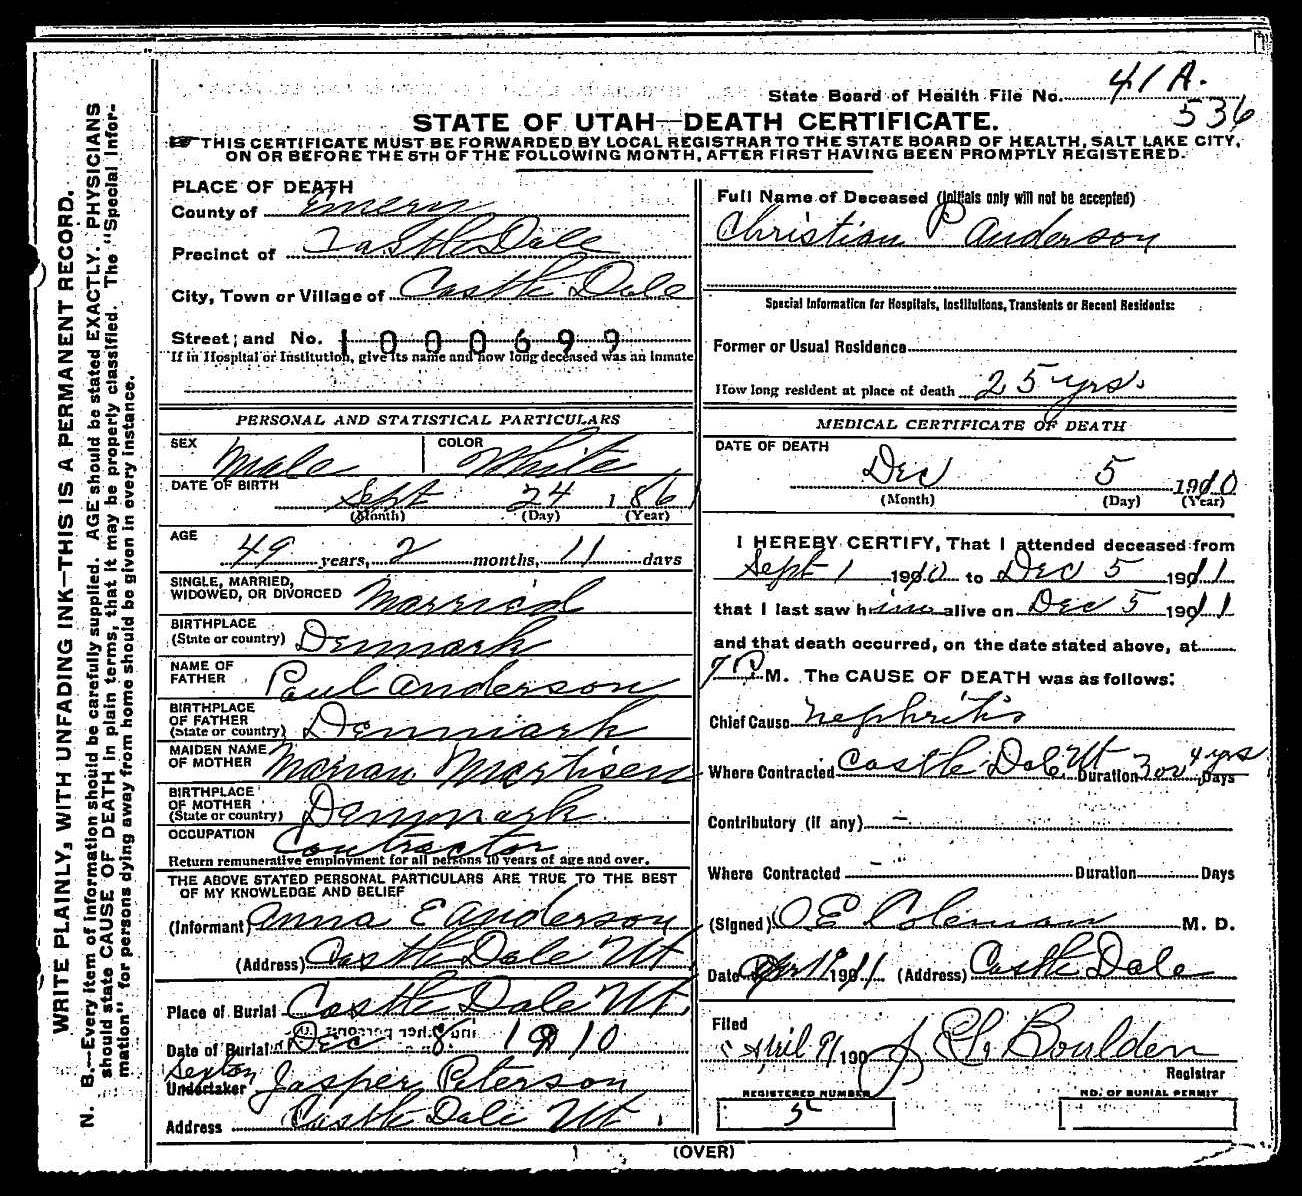 State Board of Health File No. 41A.
536
STATE OF UTAH—DEATH CERTIFICATE.
☞ THIS CERTIFICATE MUST BE FORWARDED BY LOCAL REGISTRAR TO THE STATE BOARD OF HEALTH, SALT LAKE CITY,
ON OR BEFORE THE 5TH OF THE FOLLOWING MONTH, AFTER FIRST HAVING BEEN PROMPTLY REGISTERED.
WRITE PLAINLY, WITH UNFADING INK—THIS IS A PERMANENT RECORD.
N. B.—Every item of information should be carefully supplied. AGE should be stated EXACTLY. PHYSICIANS
should state CAUSE OF DEATH in plain terms, that it may be properly classified. The "Special Infor-
mation" for persons dying away from home should be given in every instance.
PLACE OF DEATH
County of Emery
Precinct of Castle Dale
City, Town or Village of Castle Dale
Street; and No. 1000699
If in Hospital or Institution, give its name and how long deceased was an inmate
PERSONAL AND STATISTICAL PARTICULARS
SEX Male COLOR White
DATE OF BIRTH Sept 24 1861
(Month) (Day) (Year)
AGE 49 years, 2 months, 11 days
SINGLE, MARRIED,
WIDOWED, OR DIVORCED Married
BIRTHPLACE
(State or country) Denmark
NAME OF
FATHER Paul Anderson
BIRTHPLACE
OF FATHER
(State or country) Denmark
MAIDEN NAME
OF MOTHER Marian Mortisen
BIRTHPLACE
OF MOTHER
(State or country) Denmark
OCCUPATION Contractor
Return remunerative employment for all persons 10 years of age and over.
THE ABOVE STATED PERSONAL PARTICULARS ARE TRUE TO THE BEST
OF MY KNOWLEDGE AND BELIEF
(Informant) Anna E Anderson
(Address) Castle Dale Ut
Place of Burial Castle Dale Ut.
Date of Burial Dec 8 1910
Sexton
Undertaker Jasper Peterson
Address Castle Dale Ut.
Full Name of Deceased (Initials only will not be accepted)
Christian P Anderson
Special Information for Hospitals, Institutions, Transients or Recent Residents:
Former or Usual Residence
How long resident at place of death 25 yrs.
MEDICAL CERTIFICATE OF DEATH
DATE OF DEATH
Dec 5 1910
(Month) (Day) (Year)
I HEREBY CERTIFY, That I attended deceased from
Sept 1 1910 to Dec 5 1911
that I last saw him alive on Dec 5 1911
and that death occurred, on the date stated above, at
7 P. M. The CAUSE OF DEATH was as follows:
Chief Cause Nephritis
Where Contracted Castle Dale Ut Duration 3 or 4 yrs Days
Contributory (if any) —
Where Contracted — Duration Days
(Signed) O E Coleman M. D.
Date 1911 (Address) Castle Dale
Filed
April 9/ 190 J Boulden
Registrar
REGISTERED NUMBER
5
NO. OF BURIAL PERMIT
(OVER)